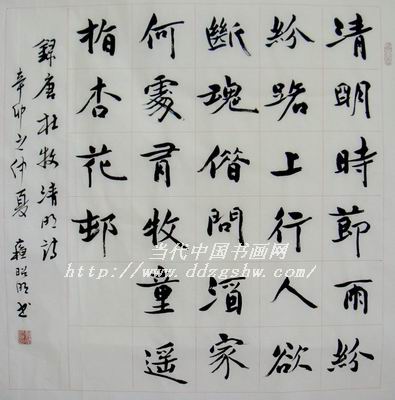 清明時節雨紛
紛路上行人欲
斷魂借問酒家
何處有牧童遥
指杏花邨
錄唐杜牧清明詩
辛卯之仲夏
当代中国书画网
http://www.ddzgshw.com